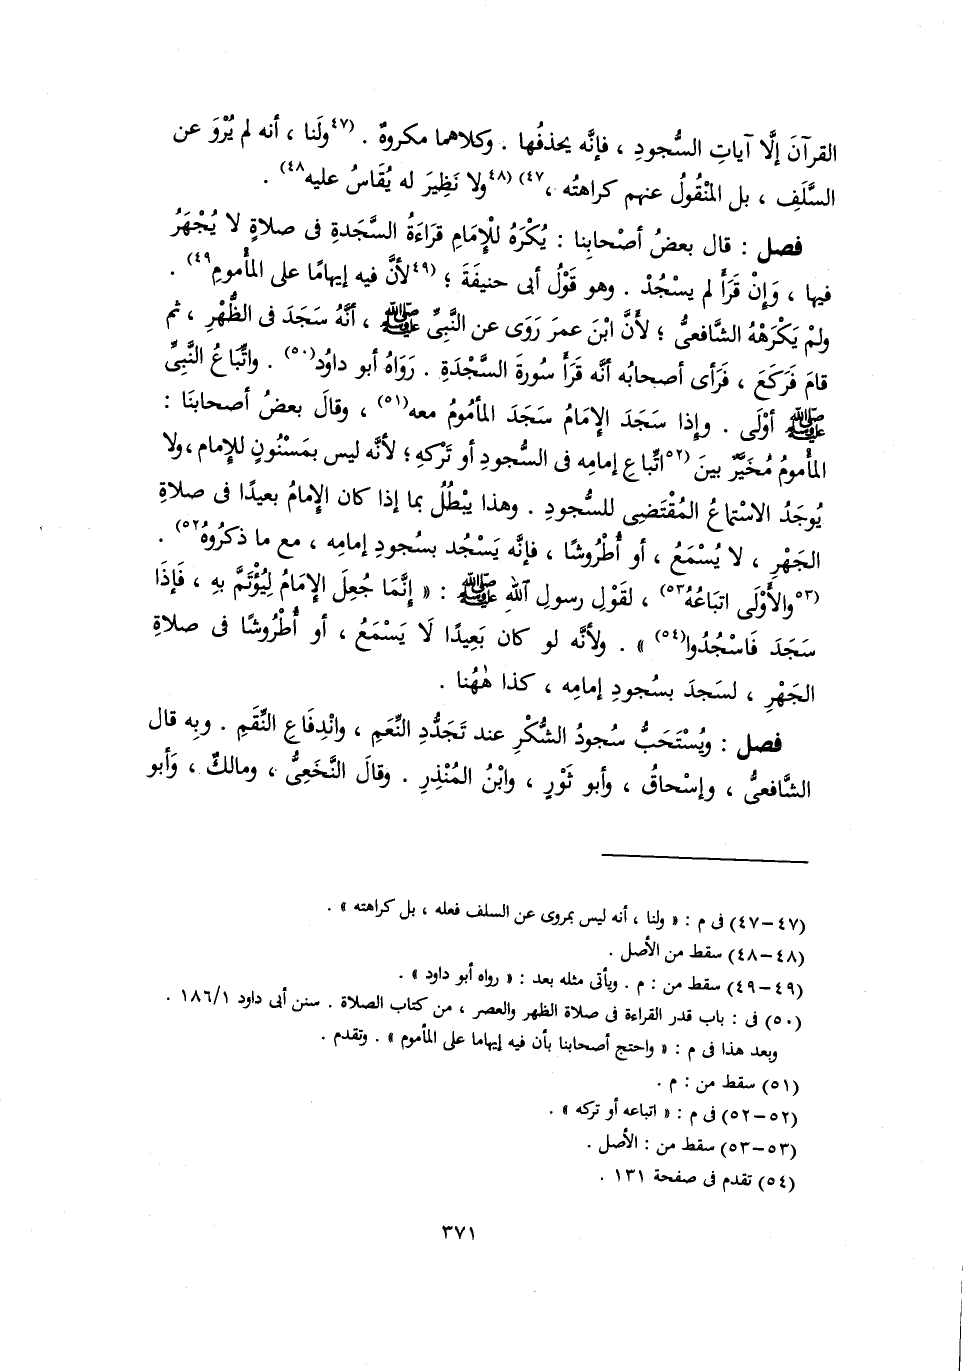 القرآنَ إلَّا آياتِ السُّجودِ ، فإنَّه يحذفُها . وكلاهما مكروهٌ . (٤٧ولَنا ، أنه لم يُرْوَ عن
السَّلَفِ ، بل المْنْقُولُ عنهم كراهتُه ،٤٧) (٤٨ولا نَظِيرَ له يُقَاسُ عليه٤٨) .
فصل : قال بعضُ أصْحابِنا : يُكْرَهُ للْإِمَامِ قرَاءَةُ السَّجَدةِ فى صلاةٍ لا يُجْهَرُ
فيها ، وَإِنْ قرَأَ لم يسْجُدْ . وهو قَوْلُ أبى حنيفَةَ ؛ (٤٩لأنَّ فيه إيهامًا على المأْمومِ٤٩) .
ولمْ يَكْرَهْهُ الشَّافعىُّ ؛ لأَنَّ ابْنَ عمرَ رَوَى عن النَّبِىِّ ﷺ ، أنَّهُ سَجَدَ فى الظُّهْرِ ، ثم
قامَ فَرَكَعَ ، فَرَأى أصحابُه أنَّه قرَأَ سُورةَ السَّجْدَةِ . رَوَاهُ أبو داوُد(٥٠) . واتِّبَاعُ النَّبِىِّ
ﷺ أوْلَى . وإِذا سَجَدَ الإِمَامُ سَجَدَ المأمُومُ معه(٥١) ، وقالَ بعضُ أصحابنَا :
المأْمومُ مُخَيَّرٌ بينَ (٥٢اتِّباعِ إمامِه فى السُّجودِ أو تَرْكهِ ؛ لأنَّه ليس بمَسْنُونٍ للإمام ، ولا
يُوجَدُ الاسْتماعُ المُقْتَضِى للسُّجودِ . وهذا يبْطُلُ بما إذا كان الإمامُ بعيدًا فى صلاةِ
الجَهْرِ ، لا يُسْمَعُ ، أو أُطْرُوشًا ، فإنَّه يَسْجُد بسُجودِ إمامِه ، مع ما ذكرُوهُ٥٢) .
(٥٣والأَوْلَى اتبَاعُهُ٥٣) ، لقَوْلِ رسولِ اللهِ ﷺ : « إِنَّمَا جُعِلَ الإِمَامُ لِيُؤْتَمَّ بهِ ، فَإذَا
سَجَدَ فَاسْجُدُوا(٥٤) » . ولأنَّه لو كان بَعِيدًا لَا يَسْمَعُ ، أو أُطْرُوشًا فى صلاةِ
الجَهْرِ ، لسَجدَ بسُجودِ إمامِه ، كذا هٰهُنا .
فصل : ويُسْتَحَبُّ سُجودُ الشُّكْرِ عند تَجَدُّدِ النِّعَمِ ، وانْدِفَاعِ النِّقَمِ . وبِه قال
الشَّافعىُّ ، وإسْحاقُ ، وأبو ثَوْرٍ ، وابْنُ المُنْذِرِ . وقالَ النَّخَعِىُّ ، ومالكٌ ، وَأبو
(٤٧–٤٧) فى م : « ولنا ، أنه ليس بمروى عن السلف فعله ، بل كراهته » .
(٤٨–٤٨) سقط من الأصل .
(٤٩–٤٩) سقط من : م . ويأتى مثله بعد : « رواه أبو داود » .
(٥٠) فى : باب قدر القراءة فى صلاة الظهر والعصر ، من كتاب الصلاة . سنن أبى داود ١/١٨٦ .
وبعد هذا فى م : « واحتج أصحابنا بأن فيه إيهاما على المأموم » . وتقدم .
(٥١) سقط من : م .
(٥٢–٥٢) فى م : « اتباعه أو تركه » .
(٥٣–٥٣) سقط من : الأصل .
(٥٤) تقدم فى صفحة ١٣١ .
٣٧١